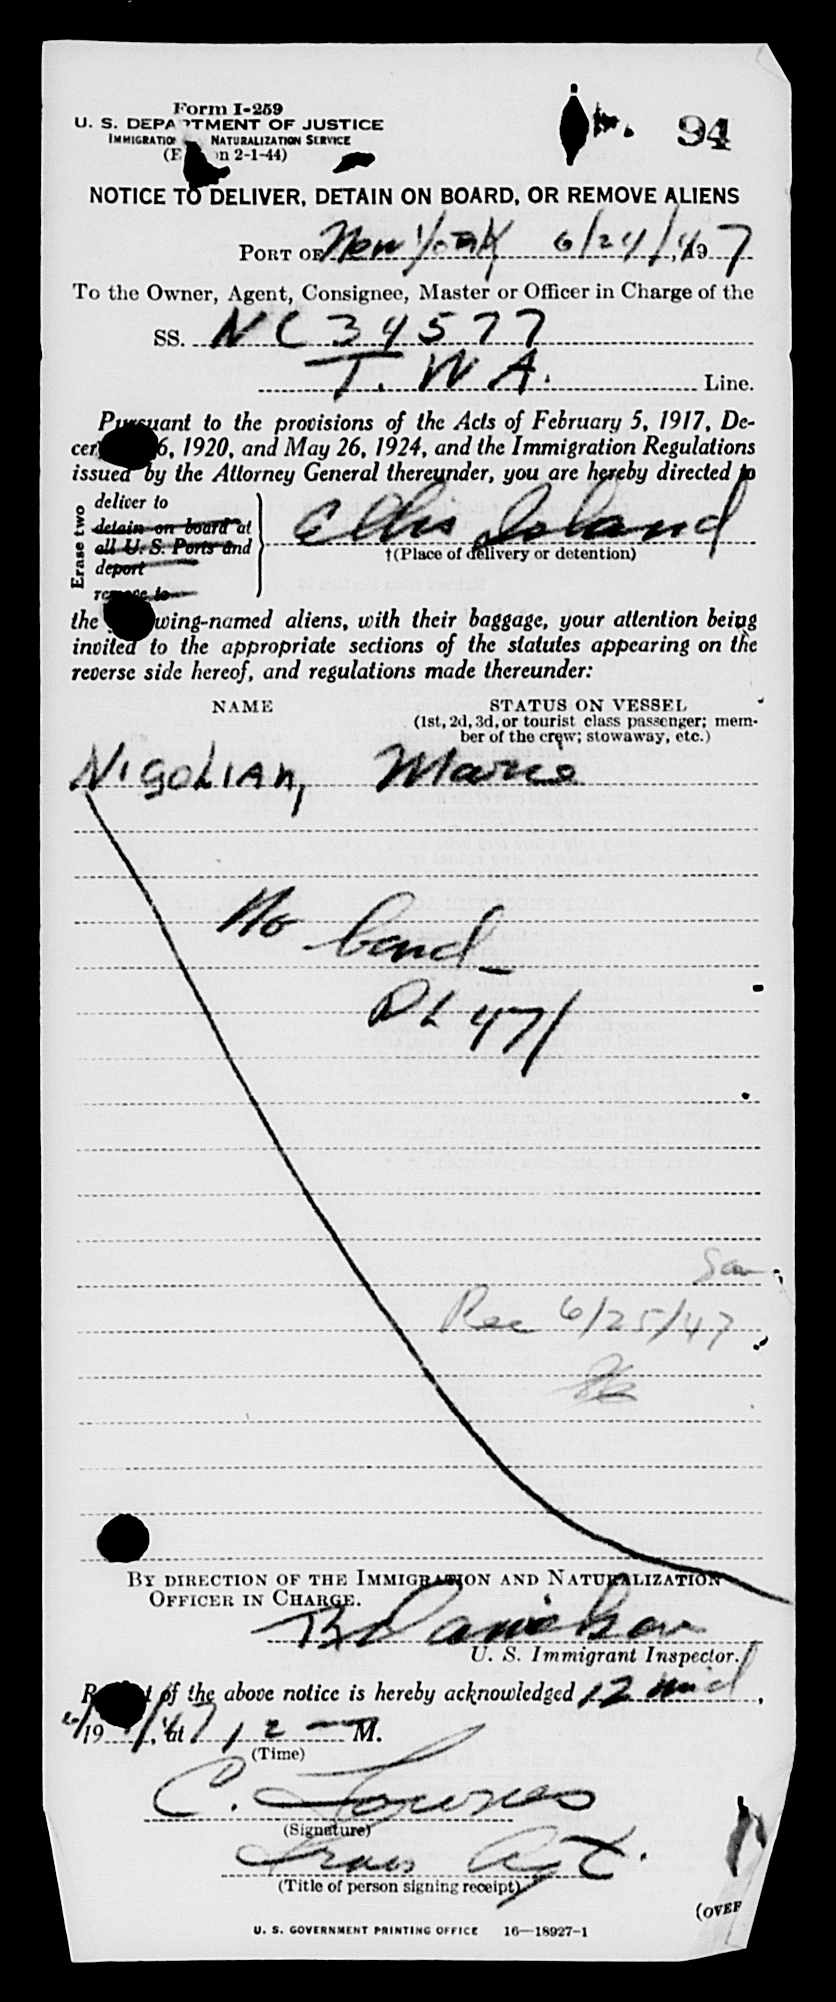 Form I-259
94
U. S. DEPARTMENT OF JUSTICE
IMMIGRATION NATURALIZATION SERVICE
2-1-44)
NOTICE TO DELIVER, DETAIN ON BOARD, OR REMOVE ALIENS
PORT OF New York 6/24/, 1947
To the Owner, Agent, Consignee, Master or Officer in Charge of the
SS. NC 34577
T. W A. Line.
Pursuant to the provisions of the Acts of February 5, 1917, De-
6, 1920, and May 26, 1924, and the Immigration Regulations
issued by the Attorney General thereunder, you are hereby directed to
Erase two
deliver to
detain on board at
all U. S. Ports and
deport
remove to
Ellis Island
†(Place of delivery or detention)
the wing-named aliens, with their baggage, your attention being
invited to the appropriate sections of the statutes appearing on the
reverse side hereof, and regulations made thereunder:
NAME STATUS ON VESSEL
(1st, 2d, 3d, or tourist class passenger; mem-
ber of the crew; stowaway, etc.)
NIGOLIAN, Marie
No bond
471
Rec 6/25/47
BY DIRECTION OF THE IMMIGRATION AND NATURALIZATION
OFFICER IN CHARGE.
U. S. Immigrant Inspector.
Receipt of the above notice is hereby acknowledged 12 mid,
19 47, at 12 — M.
(Time)
C. Townes
(Signature)
Trans Agt.
(Title of person signing receipt)
(OVER
U. S. GOVERNMENT PRINTING OFFICE 16—18927-1